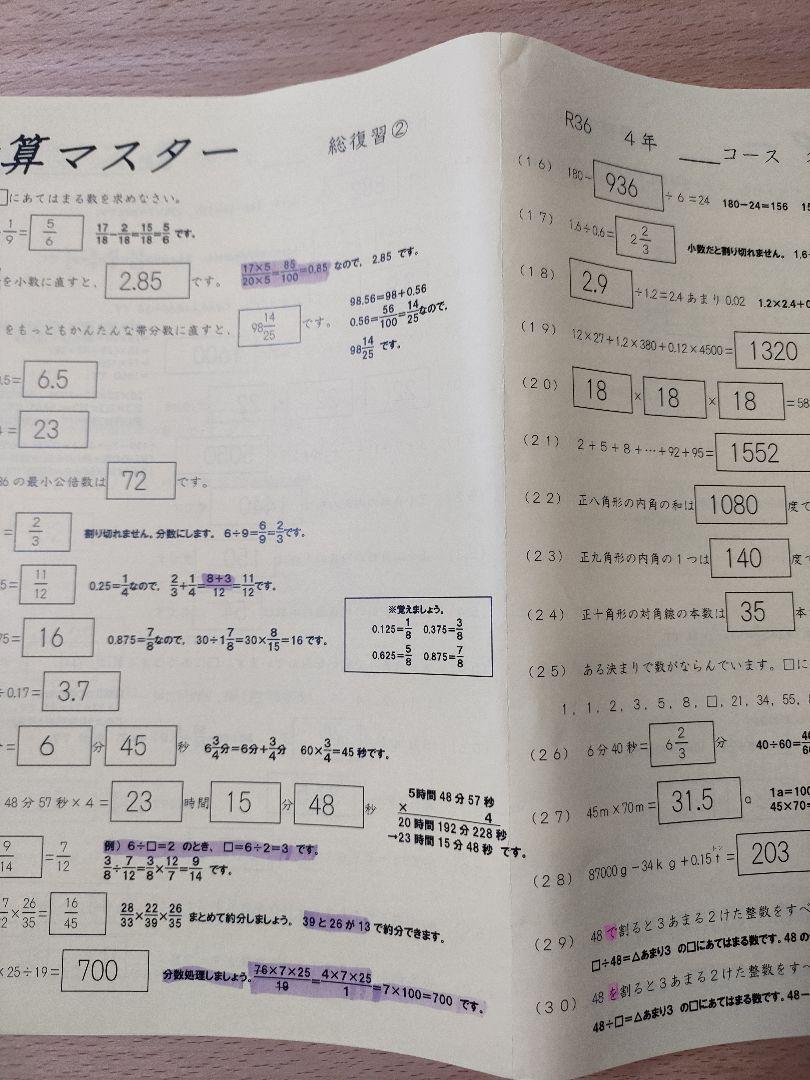 算マスター
総復習②
□にあてはまる数を求めなさい。
1/9= 5/6 17/18-2/18=15/18=5/6 です。
を小数に直すと、 2.85 です。 17×5/20×5=85/100=0.85 なので、 2.85 です。
をもっともかんたんな帯分数に直すと、 98 14/25 です。
98.56=98+0.56
0.56=56/100=14/25なので、
98 14/25 です。
.5= 6.5
= 23
36の最小公倍数は 72 です。
= 2/3 割り切れません。分数にします。 6÷9=6/9=2/3です。
5= 11/12 0.25=1/4なので、 2/3+1/4=8+3/12=11/12です。
75= 16 0.875=7/8なので、 30÷1 7/8=30×8/15=16です。
※覚えましょう。
0.125=1/8 0.375=3/8
0.625=5/8 0.875=7/8
÷0.17= 3.7
= 6 分 45 秒 6 3/4分=6分+3/4分 60×3/4=45秒です。
48分57秒×4= 23 時間 15 分 48 秒
5時間48分57秒
× 4
20時間192分228秒
→23時間15分48秒 です。
9/14 =7/12 例）6÷□=2 のとき、 □=6÷2=3 です。
3/8÷7/12=3/8×12/7=9/14 です。
×26/35= 16/45 28/33×22/39×26/35 まとめて約分しましょう。 39と26が13で約分できます。
×25÷19= 700 分数処理しましょう。 76×7×25/19=4×7×25/1=7×100=700 です。
R36 4年 ___コース
(16) 180- 936 ÷6=24 180-24=156
(17) 1.6÷0.6= 2 2/3 小数だと割り切れません。
(18) 2.9 ÷1.2=2.4あまり0.02
(19) 12×27+1.2×380+0.12×4500= 1320
(20) 18 × 18 × 18 =58
(21) 2+5+8+…+92+95= 1552
(22) 正八角形の内角の和は 1080 度で
(23) 正九角形の内角の1つは 140 度で
(24) 正十角形の対角線の本数は 35 本
(25) ある決まりで数がならんでいます。□に
1, 1, 2, 3, 5, 8, □, 21, 34, 55,
(26) 6分40秒= 6 2/3 分
(27) 45m×70m= 31.5 a 1a=100
45×70=
(28) 87000g-34kg+0.15t= 203
(29) 48で割ると3あまる2けた整数をすべ
□÷48=△あまり3 の□にあてはまる数です。48の
(30) 48を割ると3あまる2けた整数をすべ
48÷□=△あまり3 の□にあてはまる数です。48-